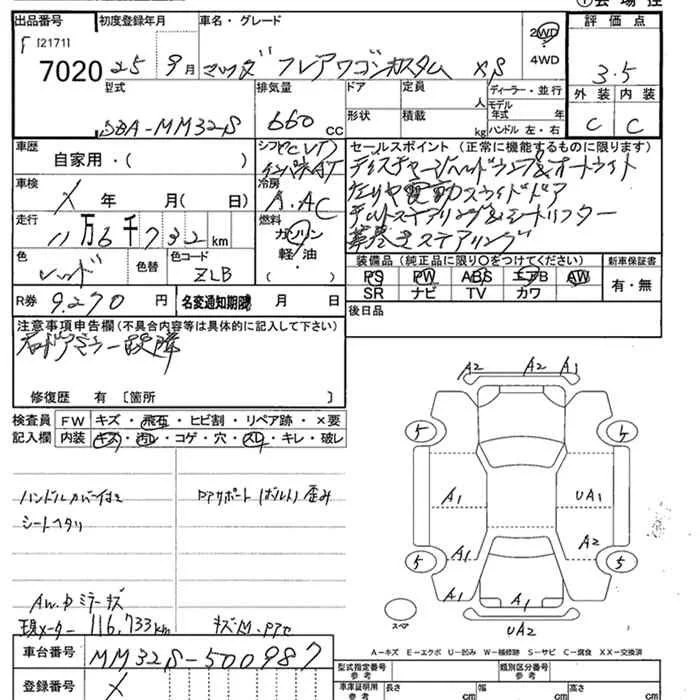 ①会場控
出品番号 初度登録年月 車名・グレード 評価点
[2171]
7020 25年 9月 マツダ フレアワゴンカスタム XS 2WD 4WD 3.5
型式 排気量 ドア 定員 人 ディーラー・並行 外装 内装
DBA-MM32S 660cc 形状 積載 kg モデル年式 年 ハンドル 左・右 C C
車歴 自家用・( ) シフト セールスポイント(正常に機能するものに限ります)
インパネAT ディスチャージヘッドランプ&オートライト
車検 X 年 月(日) 冷房 A.AC 左リヤ電動スライドドア
走行 11万6千732km 燃料 ガソリン チルトステアリング&シートリフター
軽油・( ) 革巻きステアリング
色 レッド 色替 色コード ZLB
装備品(純正品に限り○をつけてください) 新車保証書
PS PW ABS エアB AW 有・無
SR ナビ TV カワ
R券 9.270円 名変通知期限 月 日
後日品
注意事項申告欄(不具合内容等は具体的に記入して下さい)
右ドアミラー故障
修復歴 有 [箇所 ]
検査員記入欄 FW キズ・飛石・ヒビ割・リペア跡・×要
内装 キズ・汚レ・コゲ・穴・スレ・キレ・破レ
A2 A2 A1
5 4
ハンドルカバー付き PPサポート(ボルト)歪み
シートヘタリ
A1 UA1
A2
A1
5 5
A1 A1
AW.ドミラーキズ
現メーター 116,733km
スペア
UA2
A-キズ E-エクボ U-凹み W-補修跡 S-サビ C-腐食 XX-交換済
車台番号 MM32S-500987
型式指定番号 参考 類別区分番号 参考
登録番号 X
車庫証明用 参考 長さ cm 幅 cm 高さ cm